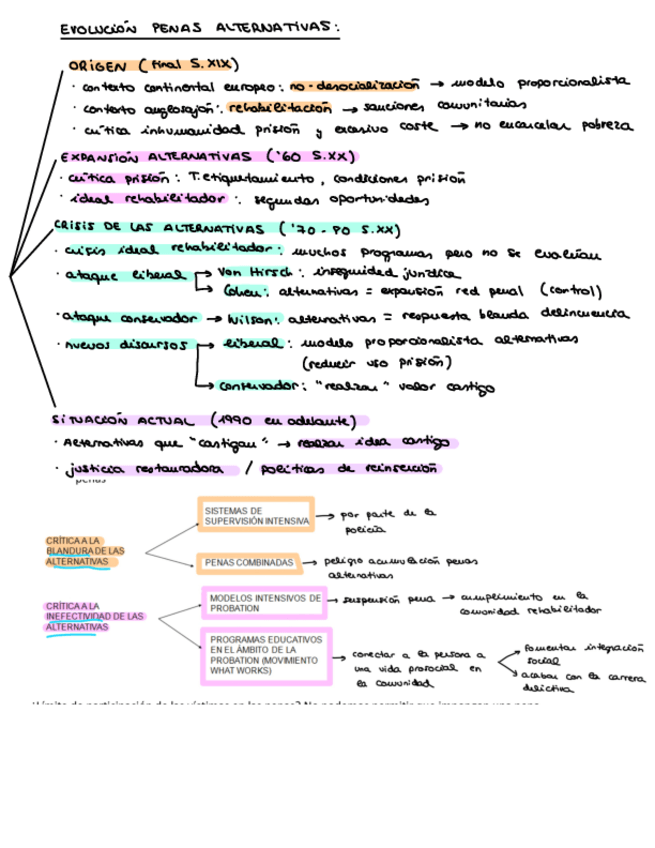 EVOLUCIÓN PENAS ALTERNATIVAS:
ORIGEN (final S.XIX)
· contexto continental europeo: no-desocialización → modelo proporcionalista
· contexto anglosajón: rehabilitación → sanciones comunitarias
· crítica inhumanidad prisión y excesivo coste → no encarcelar pobreza
EXPANSIÓN ALTERNATIVAS ('60 S.XX)
· crítica prisión: T. etiquetamiento, condiciones prisión
· ideal rehabilitador: segundas oportunidades
CRISIS DE LAS ALTERNATIVAS ('70-80 S.XX)
· crisis ideal rehabilitador: muchos programas pero no se evalúan
· ataque liberal → Von Hirsch: inseguridad jurídica
→ Cohen: alternativas = expansión red penal (control)
· ataque conservador → Wilson: alternativas = respuesta blanda delincuencia
· nuevos discursos → liberal: modelo proporcionalista alternativas
(reducir uso prisión)
→ conservador: "realzar" valor castigo
SITUACIÓN ACTUAL (1990 en adelante)
· Alternativas que "castigan" → realzan idea castigo
· justicia restauradora / políticas de reinserción
penas
SISTEMAS DE
SUPERVISIÓN INTENSIVA → por parte de la
policía
CRÍTICA A LA
BLANDURA DE LAS
ALTERNATIVAS
PENAS COMBINADAS → peligro acumulación penas
alternativas
CRÍTICA A LA
INEFECTIVIDAD DE LAS
ALTERNATIVAS
MODELOS INTENSIVOS DE
PROBATION → suspensión pena → cumplimiento en la
comunidad rehabilitador
PROGRAMAS EDUCATIVOS
EN EL ÁMBITO DE LA
PROBATION (MOVIMIENTO
WHAT WORKS)
→ conectar a la persona a
una vida prosocial en
la comunidad
fomentar integración
social
acabar con la carrera
delictiva